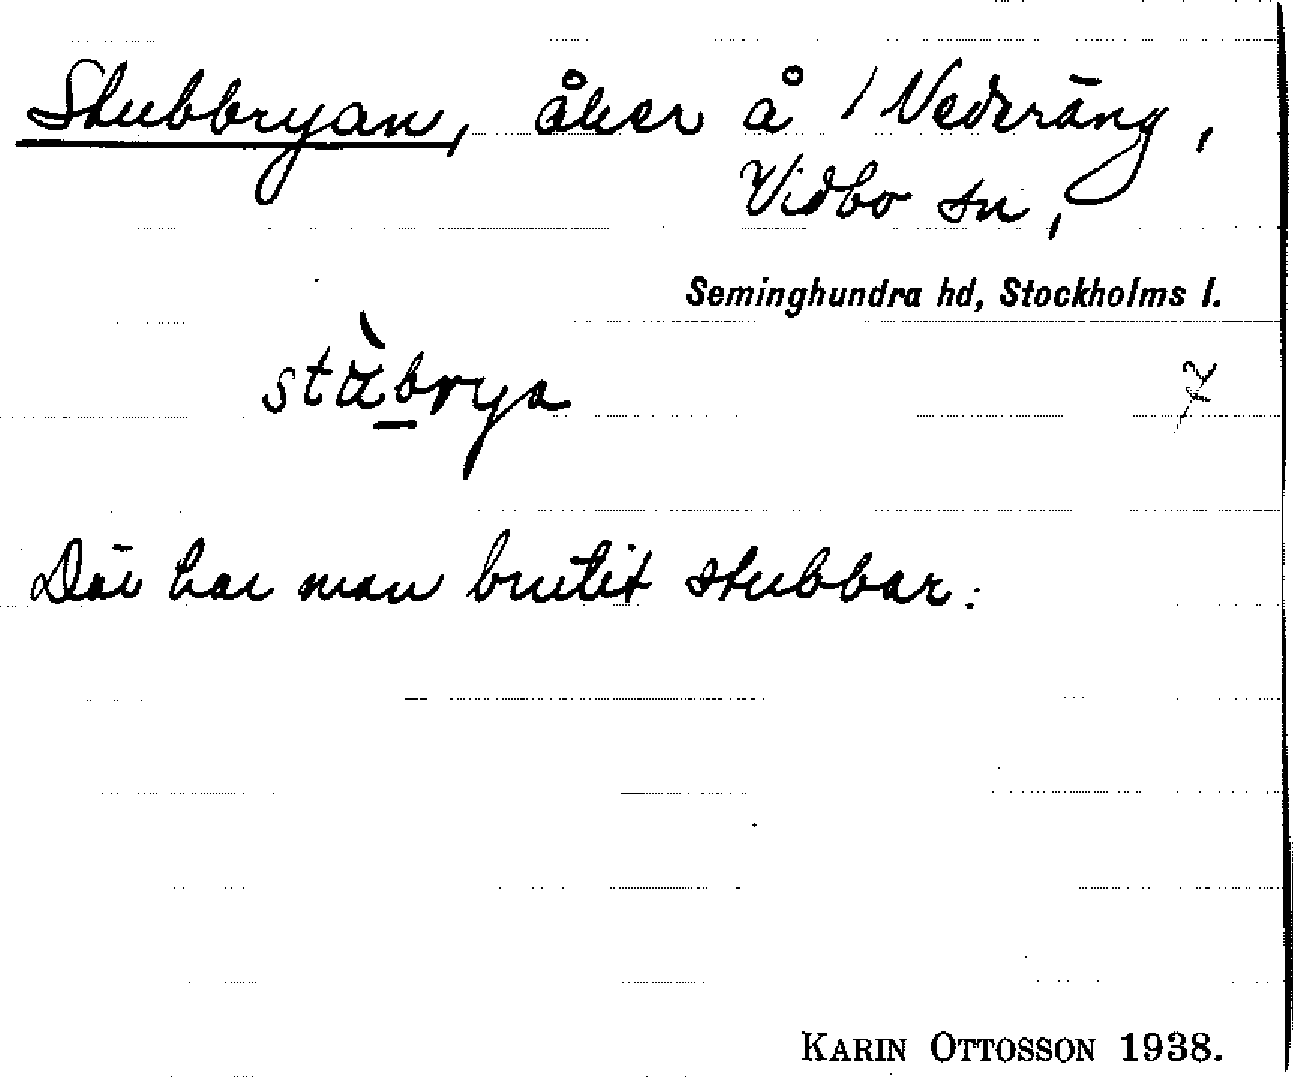 Stubbryan, åker å / Vederäng,
Vidbo sn,
Seminghundra hd, Stockholms l.
stàbrya
Där har man brutit stubbar.
KARIN OTTOSSON 1938.